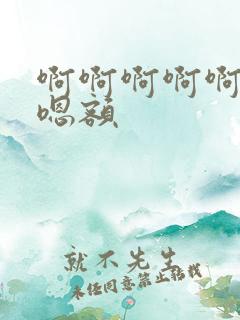 啊啊啊啊啊
嗯额
就不先生
未经同意禁止转载